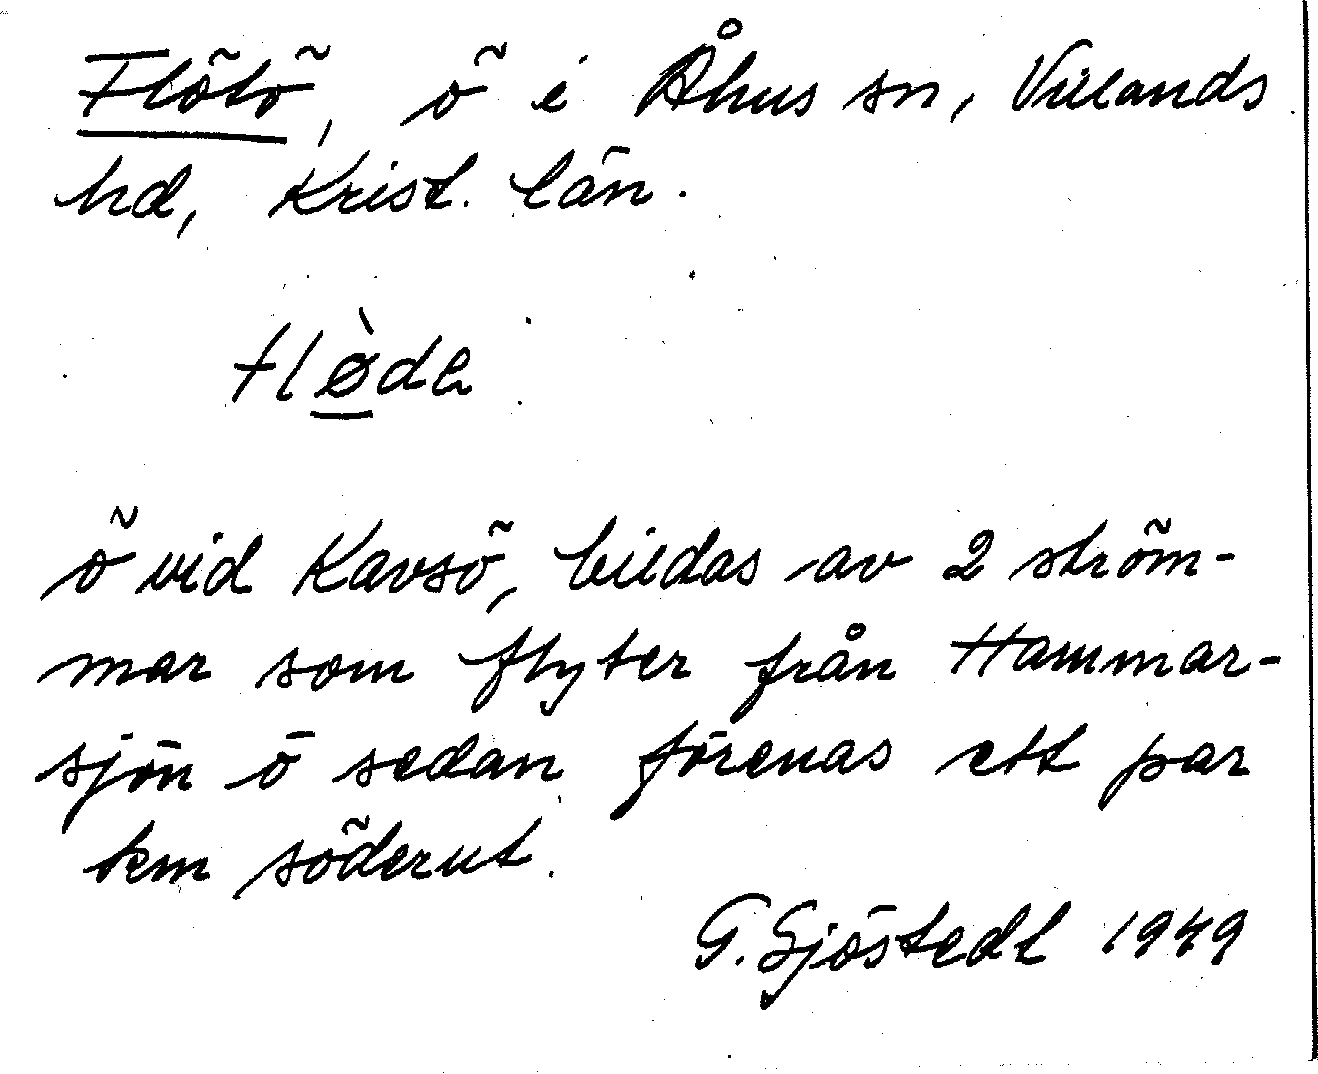 Flötö, ö i Åhus sn, Villands
hd, Krist. län.
flø̀de
ö vid Kavsö, bildas av 2 ström-
mar som flyter från Hammar-
sjön ö sedan förenas ett par
km söderut.
G. Sjöstedt 1949